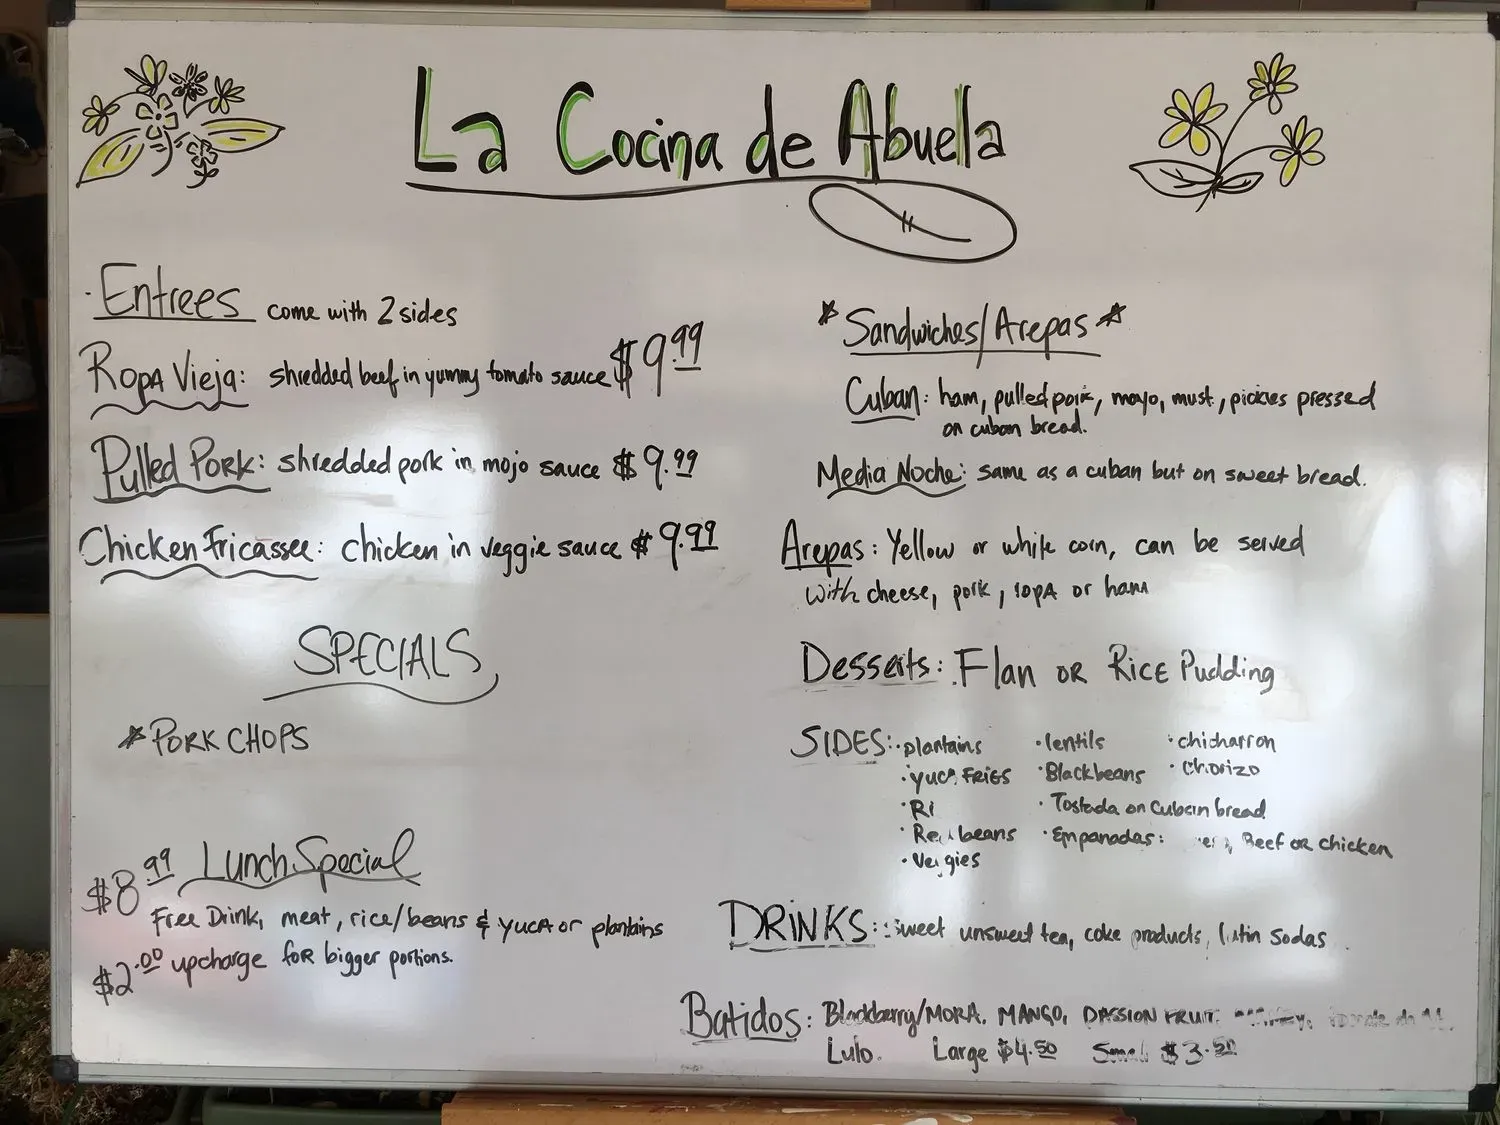 La Cocina de Abuela
Entrees come with 2 sides
Ropa Vieja: shredded beef in yummy tomato sauce $9.99
Pulled Pork: shredded pork in mojo sauce $9.99
Chicken Fricassee: chicken in veggie sauce $9.99
SPECIALS
*PORK CHOPS
$8.99 Lunch Special
Free Drink, meat, rice/beans & yuca or plantains
$2.00 upcharge for bigger portions.
*Sandwiches/Arepas*
Cuban: ham, pulled pork, mayo, must., pickles pressed
on cuban bread.
Media Noche: same as a cuban but on sweet bread.
Arepas: Yellow or white corn, can be served
with cheese, pork, ropa or ham
Desserts: Flan or Rice Pudding
SIDES: •plantains •lentils •chicharron
•yuca fries •Blackbeans •chorizo
•Ri •Tostada on Cuban bread
•Red beans •Empanadas: Beef or chicken
•Veggies
DRINKS: Sweet unsweet tea, coke products, latin sodas
Batidos: Blackberry/MORA, MANGO, PASSION FRUIT
Lulo. Large $4.50 Small $3.50